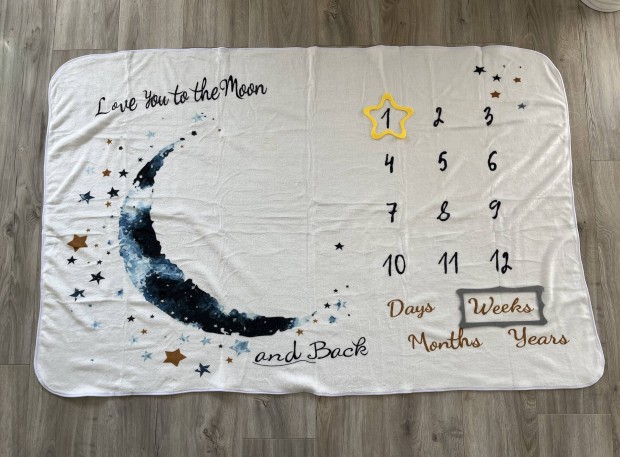 Love You to the Moon
and Back
1 2 3
4 5 6
7 8 9
10 11 12
Days Weeks
Months Years